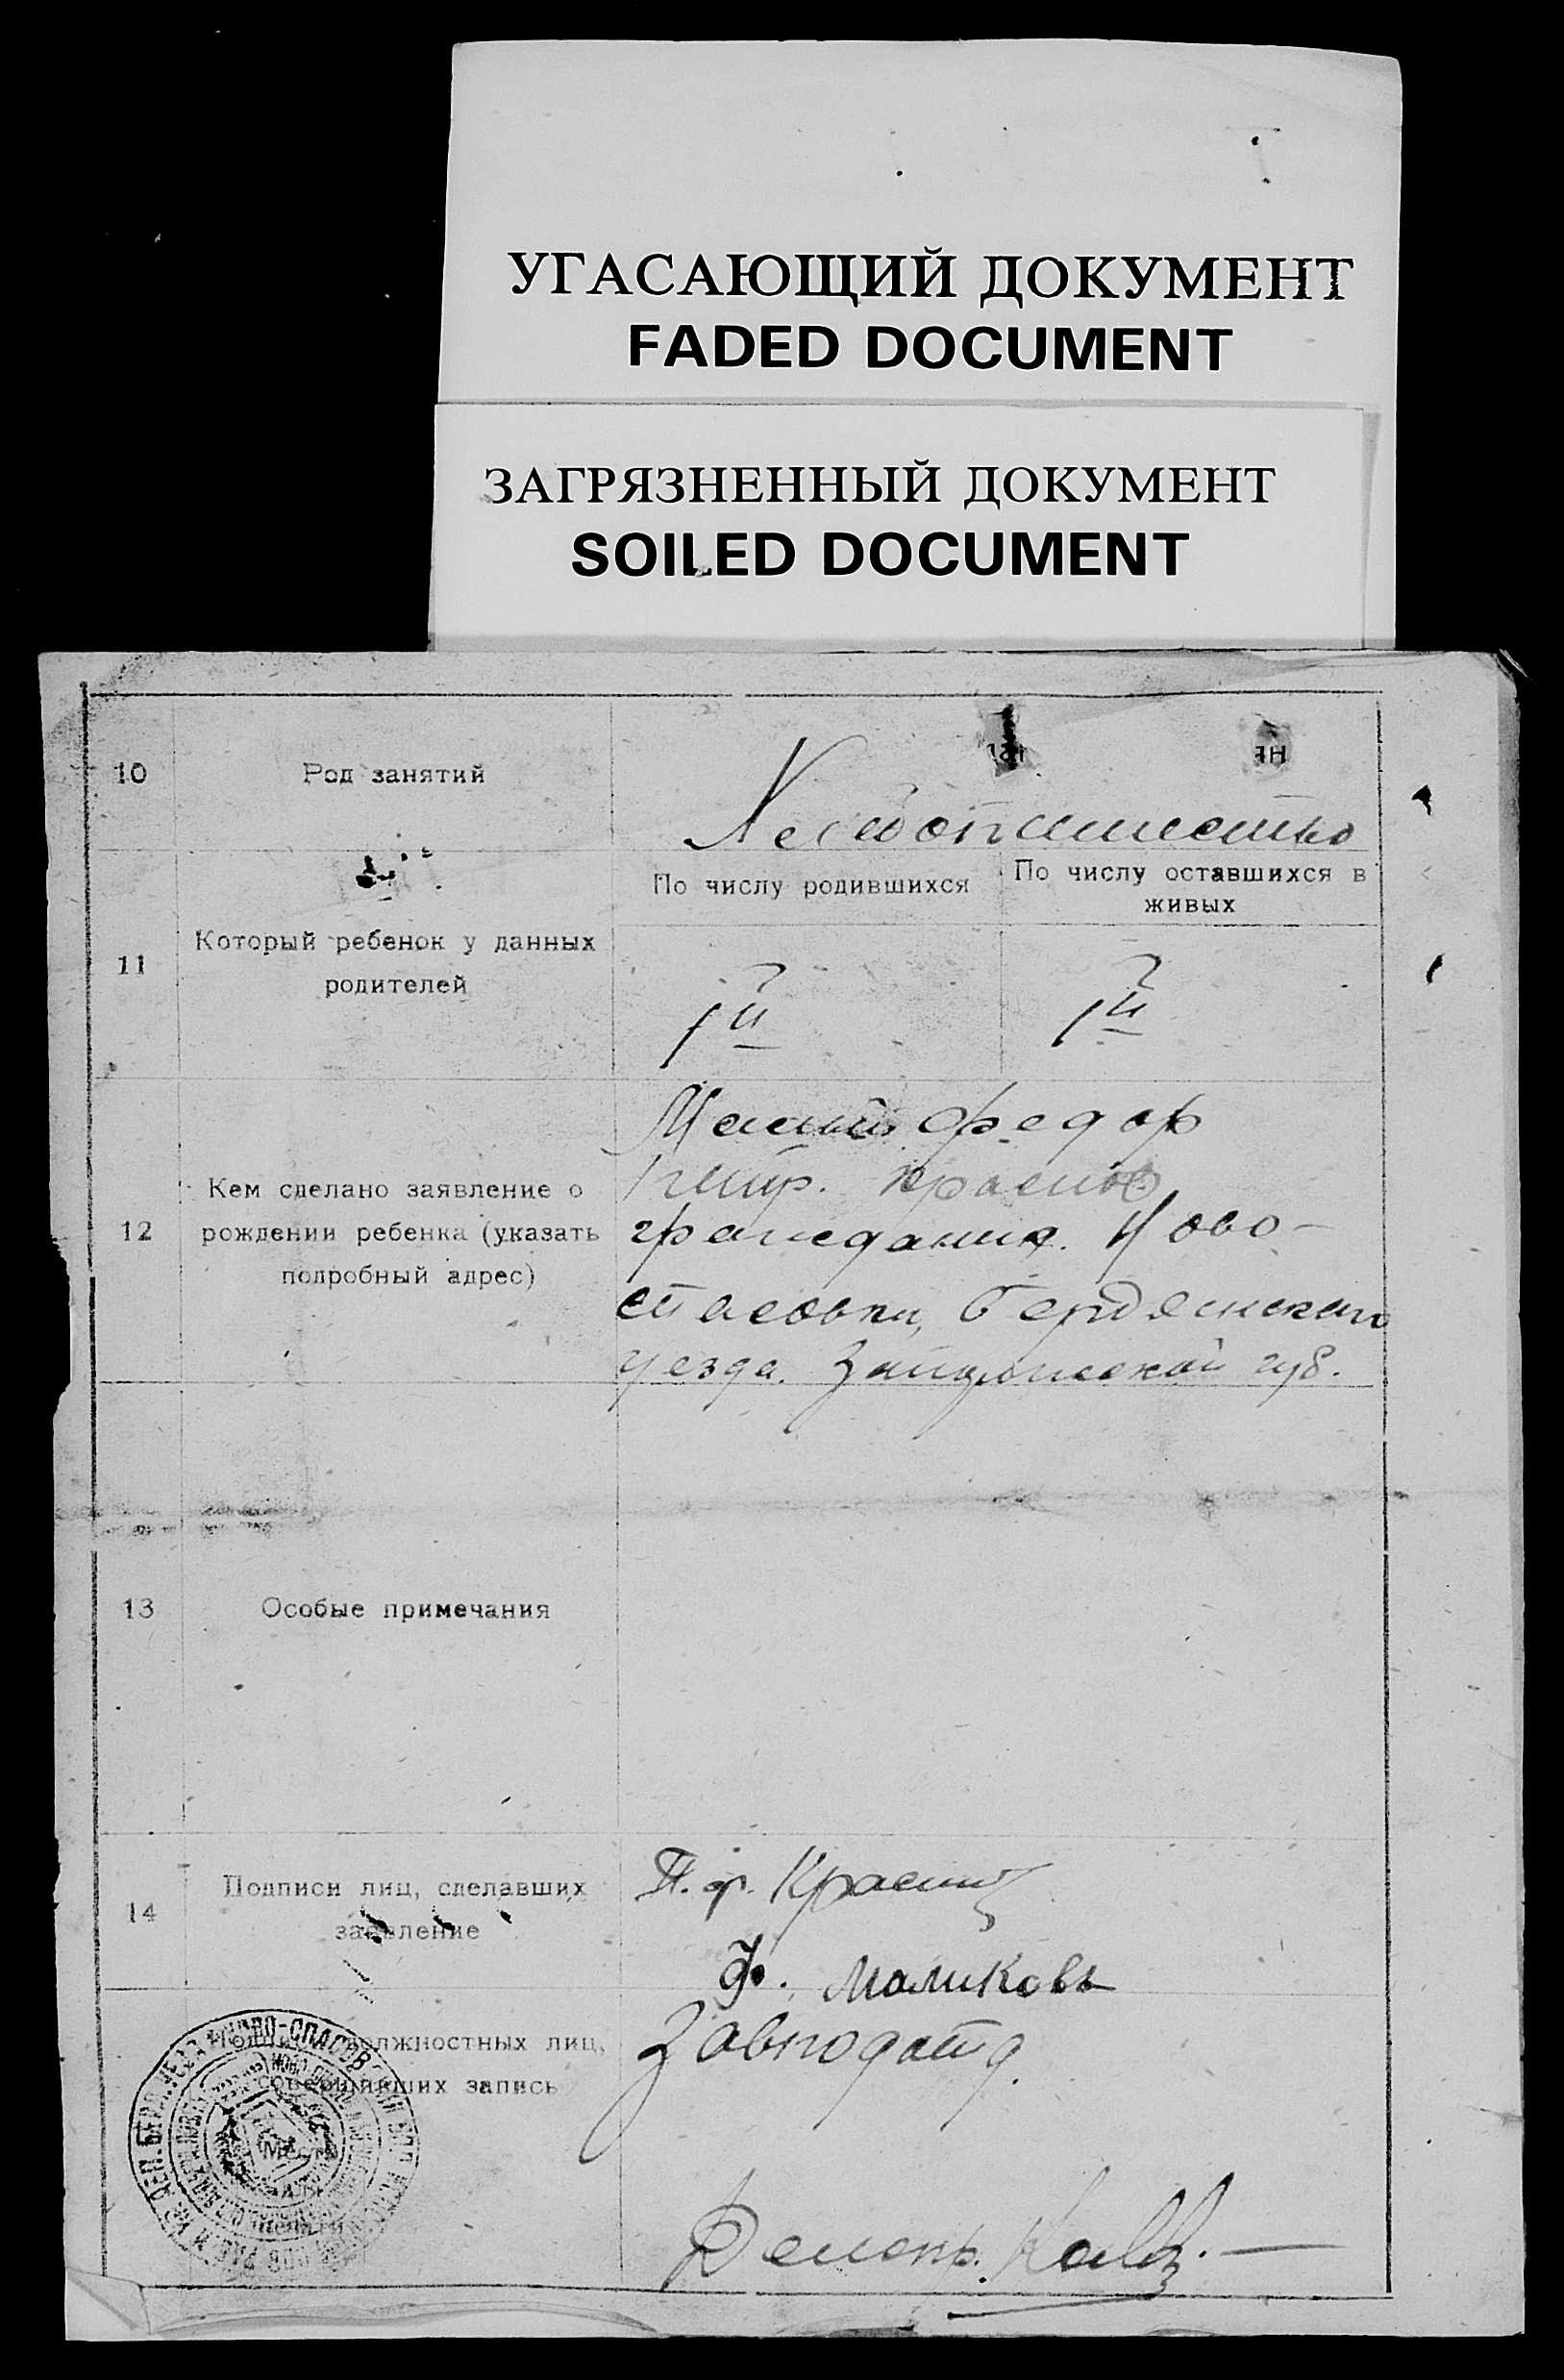 УГАСАЮЩИЙ ДОКУМЕНТ
FADED DOCUMENT
ЗАГРЯЗНЕННЫЙ ДОКУМЕНТ
SOILED DOCUMENT
10
Род занятий
Хлебопашество
11
Который ребенок у данных
родителей
По числу родившихся
По числу оставшихся в
живых
1й
1й
12
Кем сделано заявление о
рождении ребенка (указать
подробный адрес)
Федор
гражданин. Ново-
спасовки, Бердянского
уезда. Запорожской губ.
13
Особые примечания
14
Подписи лиц, сделавших
заявление
П. Ф.
Ф. Маликовъ
должностных лиц,
совершивших запись
Завподотд.